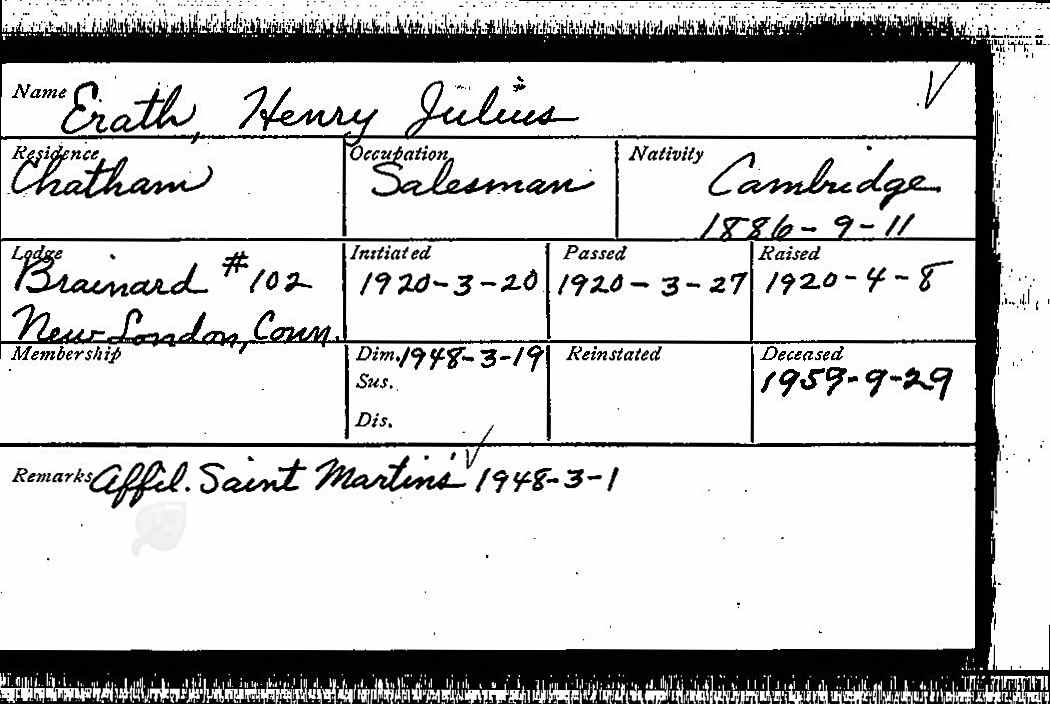 Name Erath, Henry Julius
Residence Occupation Nativity
Chatham Salesman Cambridge
1886-9-11
Lodge Initiated Passed Raised
Brainard #102 1920-3-20 1920-3-27 1920-4-8
New London, Conn.
Membership Dim. 1948-3-19 Reinstated Deceased
Sus. 1959-9-29
Dis.
Remarks Affil. Saint Martin's 1948-3-1